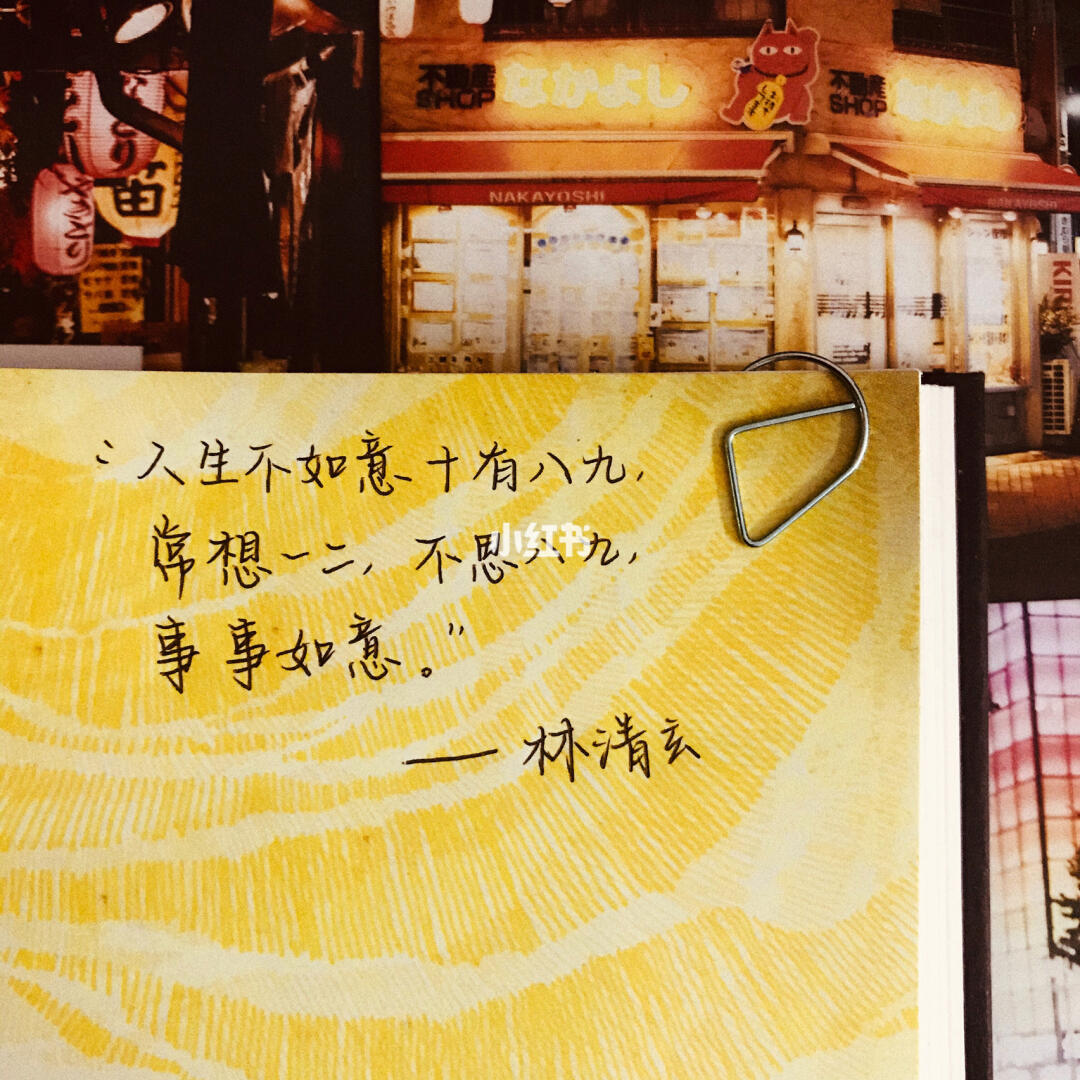 不動産
SHOP
なかよし
不動産
SHOP
なかよし
NAKAYOSHI
NAKAYOSHI
笛
KIR
“人生不如意十有八九,
常想一二,不思八九,
事事如意。”
—林清玄
小红书